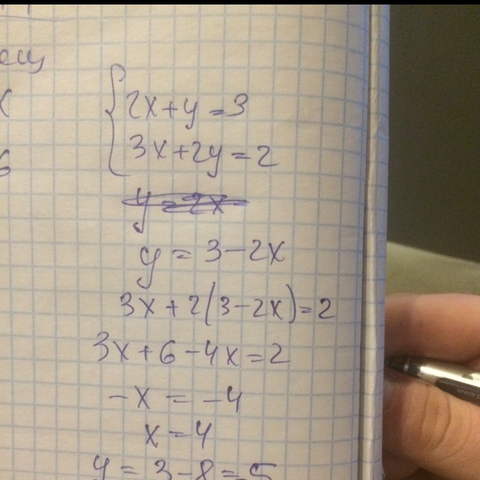 2x+y=3
3x+2y=2
y=2x
y=3-2x
3x+2(3-2x)=2
3x+6-4x=2
-x=-4
x=4
y=3-8=5